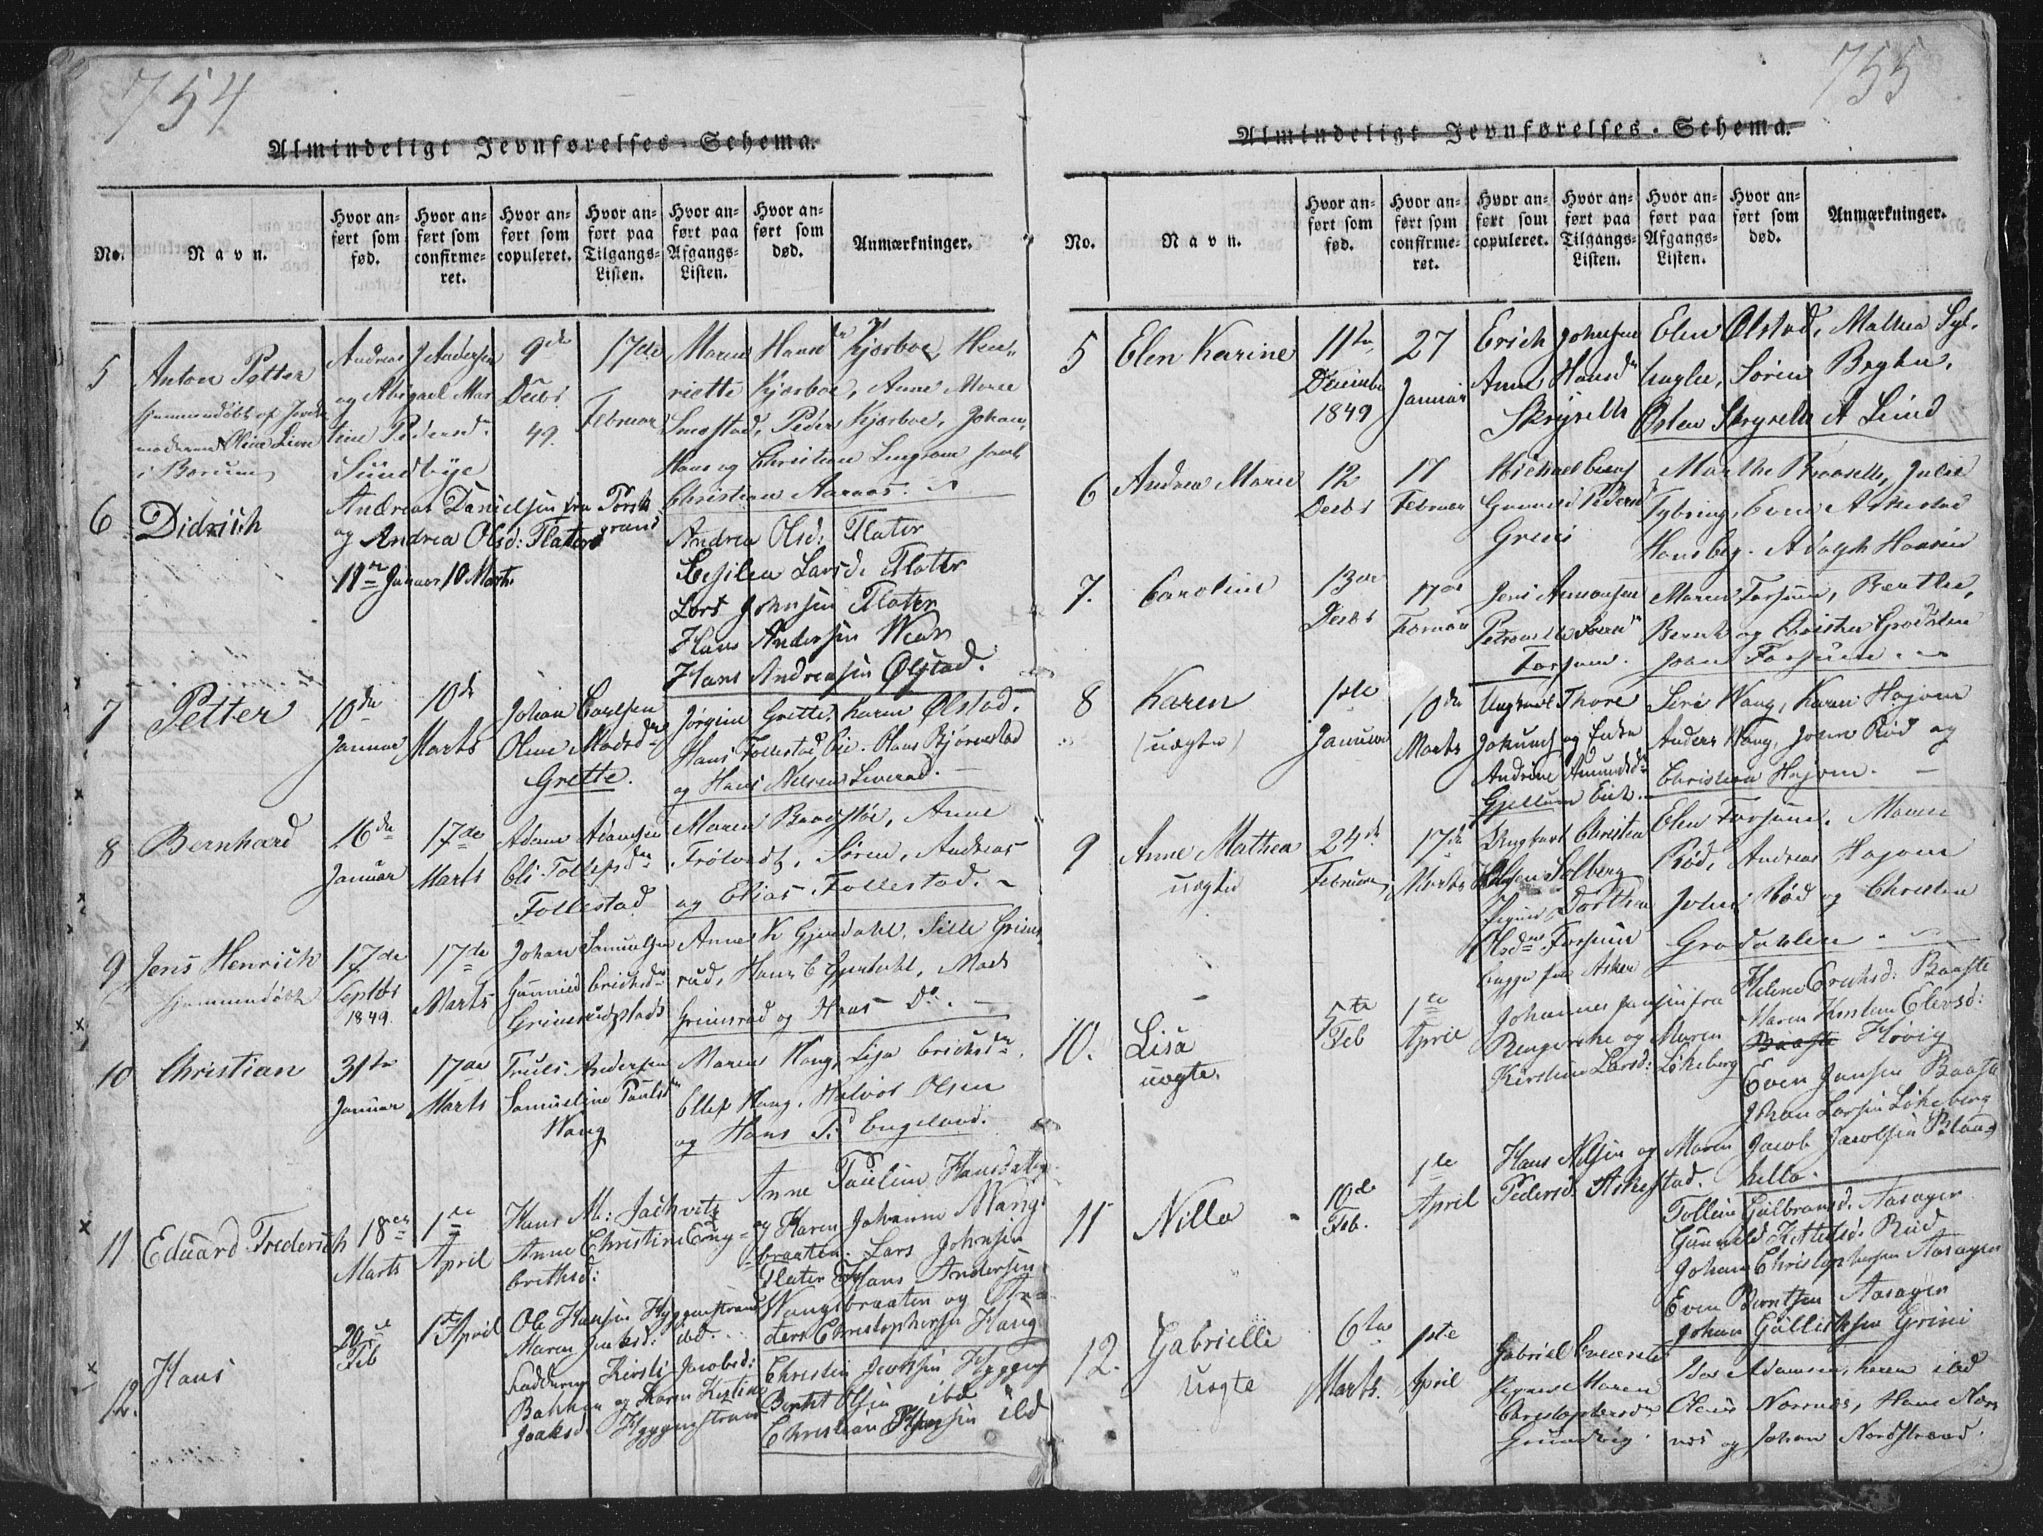 754
Almindeligt Jevnførelses-Schema.
No.
Navn.
Hvor anført som fød.
Hvor anført som confirmeret.
Hvor anført som copuleret.
Hvor anført paa Tilgangs-Listen.
Hvor anført paa Afgangs-Listen.
Hvor anført som død.
Anmærkninger.
5
Anton Petter
hjemmendøbt af
i Bærum
Andreas J Andersen
og Abigael Mar
tine Pedersdr
Sundbye
9de
Decbr
49.
17de
Februar
Maren Hansdr Kjørboe, Hen-
riette Kjørboe, Anne Marie
Smestad, Peder Kjørboe, Johan
Hans og Christian
Christian Aaraas.
6
Didrich
Andreas Danielsen fra Porsgrund
og Andrea Olsd: Flaterud
11te Januar 10 Marts
Andrea Olsd: Flater
Larsd: Flater
Lars Johnsen Flater
Hans Andersen
Hans Andreasen Ølstad.
7
Petter
10de
Januar
10de
Marts
Johan Carlsen
Oline Madsdr
Grette.
Jørgine Grette, Karen Ølstad,
Hans Follestad, Olaus Bjørnstad
og Hans Nilsen
8
Bernhard
16de
Januar
17de
Marts
Adam Adamsen
Oli Tollefsdr
Follestad
Maren Braastøe, Anne
Søren, Andreas
og Elias Follestad.
9
Jens Henrich
hjemmendøbt
17de
Septbr
1849
17de
Marts
Johan Samuelsen
Gunnild Erichsdr
Grimsrudplads
Anne K Gjerdahl, Sille Grims
rud, Hans C Gjerdahl, Mads
Grimsrud og Hans Do.
10
Christian
31te
Januar
17de
Marts
Truls Andersen
Samueline Paulsdr
Wang
Maren Wang, Lisa Erichsdr,
Ellef Wang, Halvor Olsen
og Hans P. Engeland.
11
Eduard Frederich
18de
Marts
1ste
April
Hans M: Sachvitz
Anne Christine Eng-
brethsd:
Anne Pauline Hansdatter
og Karen Johanne Wang-
braaten. Lars Johnsen
Flater Hans Andersen
Wangsbraaten og An-
ders Christophersen Haug
12.
Hans
20de
Feb
1ste April
Ole Hansen Hyggenstrand
Maren Jensd: ibd.
Fadderne Kirsti Jacobsd:
Bakken og Karen Kistine
Joaksd: Hyggenstrand
Christen Jacobsen Hyggen
Bernt Olsen ibd
Christian Hansen ibd
755
Almindeligt Jevnførelses-Schema.
No.
Navn.
Hvor anført som fød.
Hvor anført som confirmeret.
Hvor anført som copuleret.
Hvor anført paa Tilgangs-Listen.
Hvor anført paa Afgangs-Listen.
Hvor anført som død.
Anmærkninger.
5
Elen Karine
11te
Decembr
1849
27
Januar
Erich Johnsen
Anne Hansdr
Skryseth
Elen Ølstad, Mathea Syl-
ling, Søren Bryhn,
Østen Skryseth A Lund
6
Andrea Marie
12
Decbr
17
Februar
Gunnild Pedersd
Greni
Marthe Braaseth, Julie
Tybring, Even Askestad
Hansbeg. Adolph Hansen
7.
Caroline
13de
Decbr
17de
Februar
Jens Amonsen
Petronelle Sørensdr
Forsum.
Maren Forsum, Berthe,
Bernt og Christen Grodalen
John Forsum.
8
Karen
(uægte)
1ste
Januar
10de
Marts
Ungkarl Thore
og Enke
Andrine Amundsdr
Gjellum
Siri Wang, Karen Hajom
Anders Wang, John Rød og
Christian Hajom.
9
Anne Mathea
uægte
24de
Februar
17de
Marts
Ungkarl Christen
Solberg
Pigen Dorthea
Olsdr Forsum
begge fra Asker
Elen Forsum, Maren
Rød, Andreas Hajom
John Rød og Christen
Grodahlen.
10.
Lisa
uægte.
5te
Feb
1ste
April
Johannes Jansen fra
Ringerike og Maren
Kirstine Larsd: Løkeberg
Helene Erichsd: Baaste
Maren Kirstine Elevsd:
Baaste Høvig
Even Jansen Baaste
Johan Larsen Løkeberg
Jacob Jacobsen Blaa-
kella.
11
Nilla
10de
Feb.
1ste
April
Hans Nilsen og Maren
Pedersd: Askestad.
Tolline Gulbransd. Aasager
Gunnild Kittelsd: Rud
Johan Christophersen Aasager
Even Berntsen Aasager
Johan Gulliksen Grini
12.
Gabrielle
Uægte
6te
Marts
1ste
April
Gabriel
Pigen Maren
Christophersdr
Grundvig
Adamsen, Karen ibd
Claus Næsnæs, Hans Næs-
næs og Johan Nordstrand.